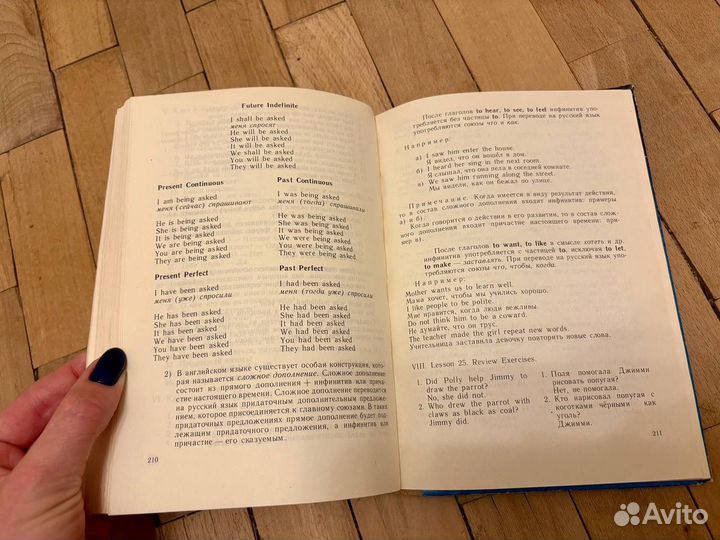 Future Indefinite
I shall be asked
меня спросят
He will be asked
She will be asked
It will be asked
We shall be asked
You will be asked
They will be asked
Present Continuous
I am being asked
меня (сейчас) спрашивают
He is being asked
She is being asked
It is being asked
We are being asked
You are being asked
They are being asked
Past Continuous
I was being asked
меня (тогда) спрашивали
He was being asked
She was being asked
It was being asked
We were being asked
You were being asked
They were being asked
Present Perfect
I have been asked
меня (уже) спросили
He has been asked
She has been asked
It has been asked
We have been asked
You have been asked
They have been asked
Past Perfect
I had been asked
меня (тогда уже) спросили
He had been asked
She had been asked
It had been asked
We had been asked
You had been asked
They had been asked
2) В английском языке существует особая конструкция, кото-
рая называется сложное дополнение. Сложное дополнение
состоит из прямого дополнения + инфинитив или прича-
стие настоящего времени. Сложное дополнение переводится
на русский язык придаточным дополнительным предложе-
нием, которое присоединяется к главному союзами. В таких
придаточных предложениях прямое дополнение будет под-
лежащим придаточного предложения, а инфинитив или
причастие — его сказуемым.
210
После глаголов to hear, to see, to feel инфинитив упо-
требляется без частицы to. При переводе на русский язык
употребляются союзы что и как.
Например:
а) I saw him enter the house.
Я видел, что он вошёл в дом.
б) I heard her sing in the next room.
Я слышал, что она пела в соседней комнате.
в) We saw him running along the street.
Мы видели, как он бежал по улице.
Примечание. Когда имеется в виду результат действия,
то в состав сложного дополнения входит инфинитив: примеры
а) и б).
Когда говорится о действии в его развитии, то в состав слож-
ного дополнения входит причастие настоящего времени: при-
мер в).
После глаголов to want, to like в смысле хотеть и др.
инфинитив употребляется с частицей to, исключая to let,
to make — заставлять. При переводе на русский язык упо-
требляются союзы что, чтобы, когда.
Например:
Mother wants us to learn well.
Мама хочет, чтобы мы учились хорошо.
I like people to be polite.
Мне нравится, когда люди вежливы.
Do not think him to be a coward.
Не думайте, что он трус.
The teacher made the girl repeat new words.
Учительница заставила девочку повторить новые слова.
VIII. Lesson 25. Review Exercises.
1. Did Polly help Jimmy to
draw the parrot?
No, she did not.
2. Who drew the parrot with
claws as black as coal?
Jimmy did.
1. Поля помогала Джимми
рисовать попугая?
Нет, не помогала.
2. Кто нарисовал попугая с
коготками чёрными как
уголь?
Джимми.
211
Avito